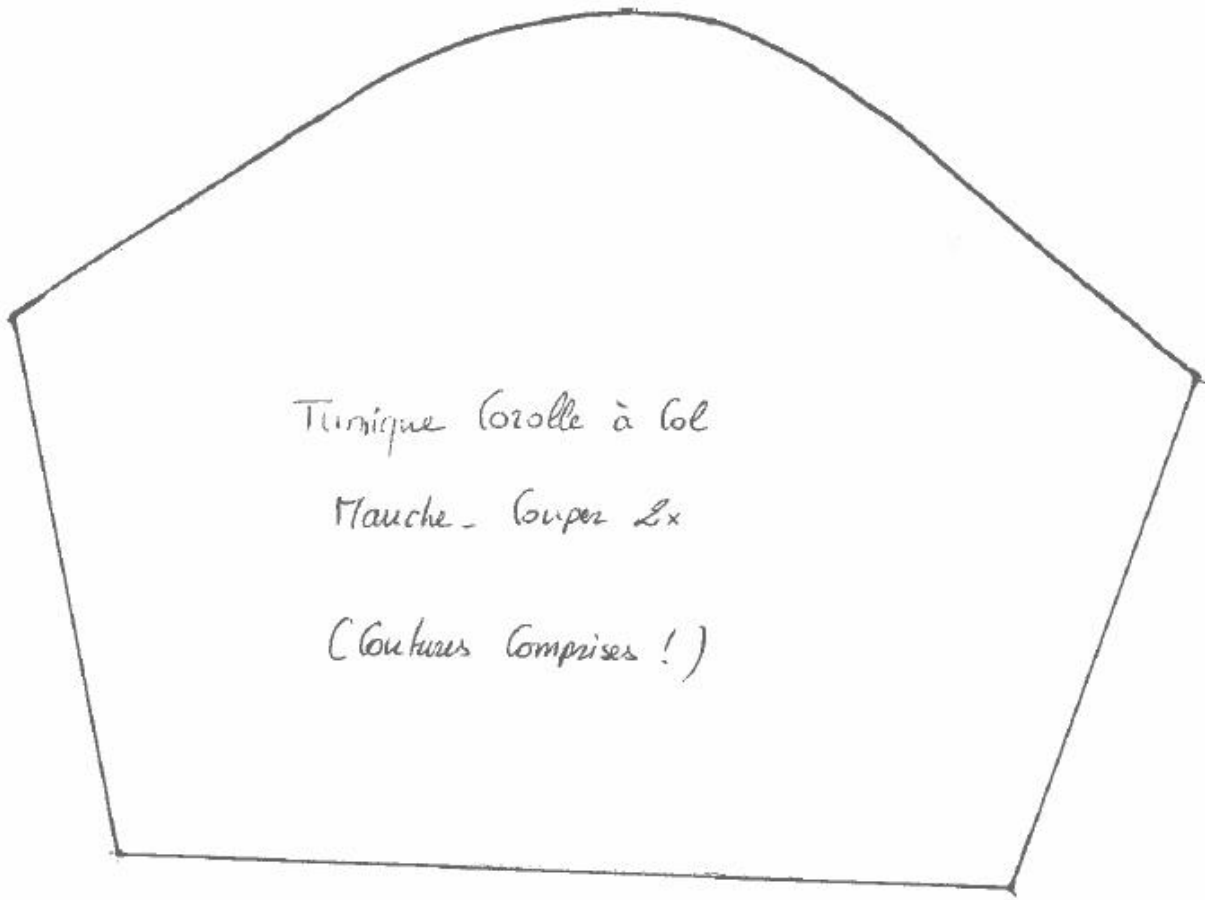 Tunique Corolle à Col
Manche - Couper 2x
(Coutures Comprises !)